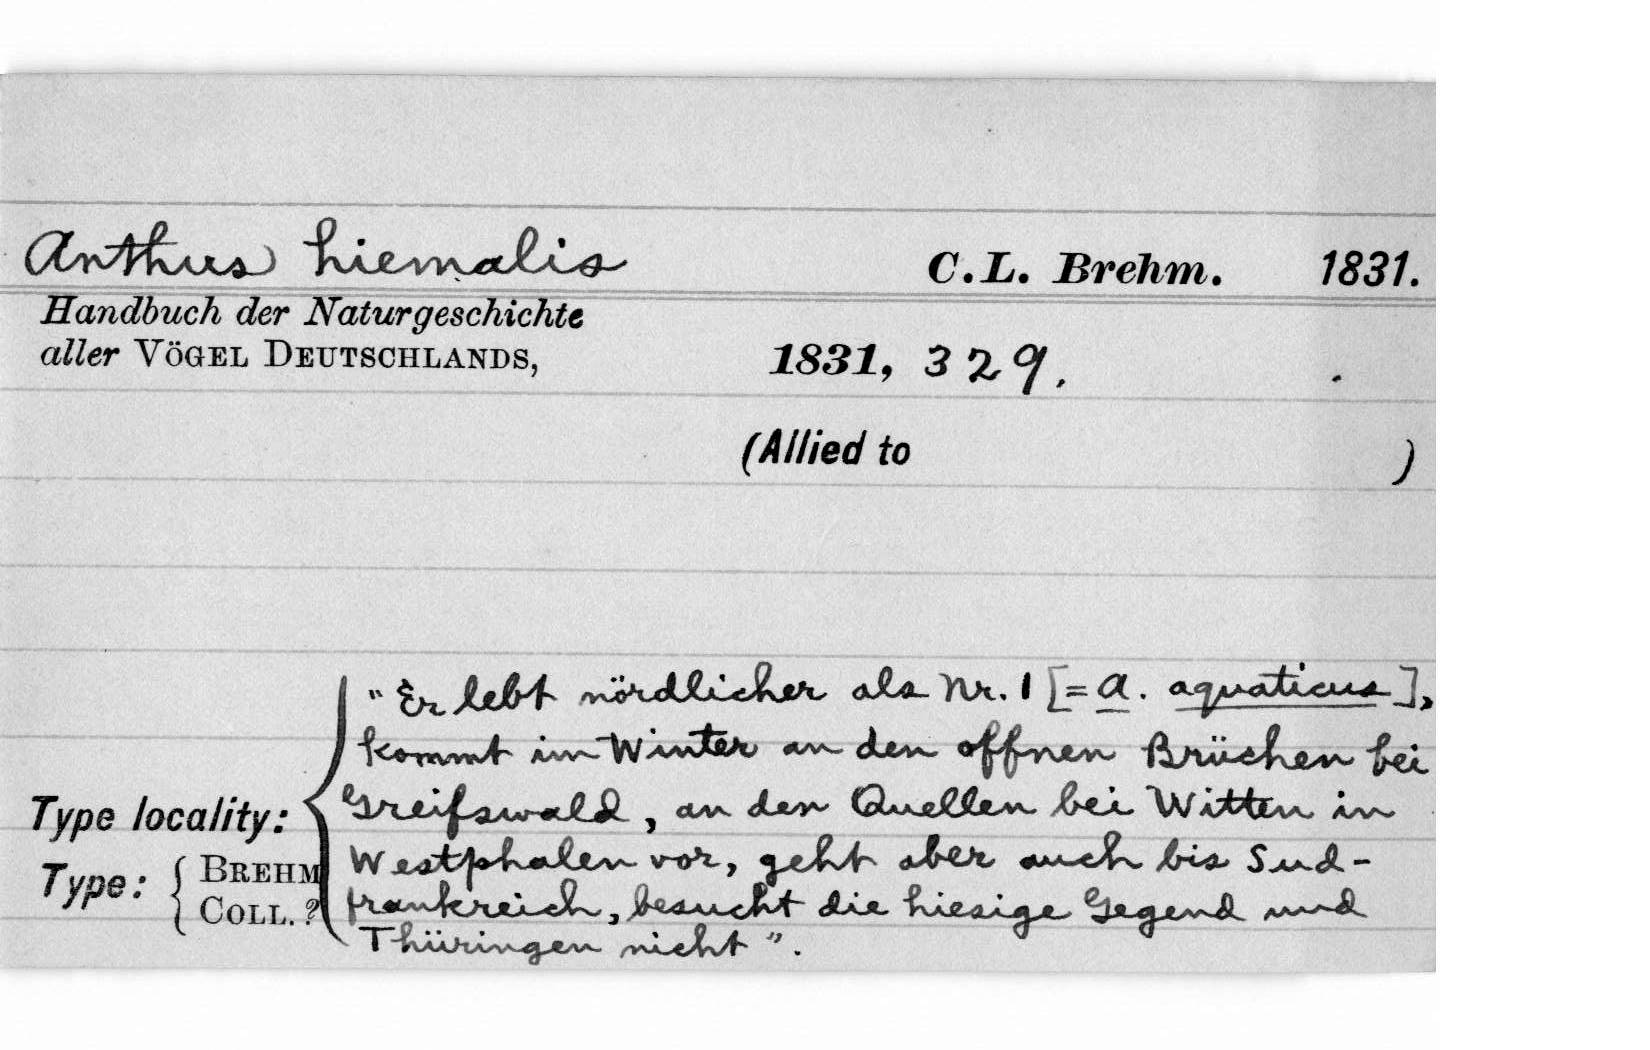 Anthus hiemalis C.L. Brehm. 1831.
Handbuch der Naturgeschichte
aller VÖGEL DEUTSCHLANDS, 1831, 329.
(Allied to )
"Er lebt nördlicher als Nr. 1 [= A. aquaticus],
kommt im Winter an den offnen Brüchen bei
Type locality: Greifswald, an den Quellen bei Witten in
Type: { BREHM Westphalen vor, geht aber auch bis Sud-
COLL. ? frankreich, besucht die hiesige Gegend und
Thüringen nicht".